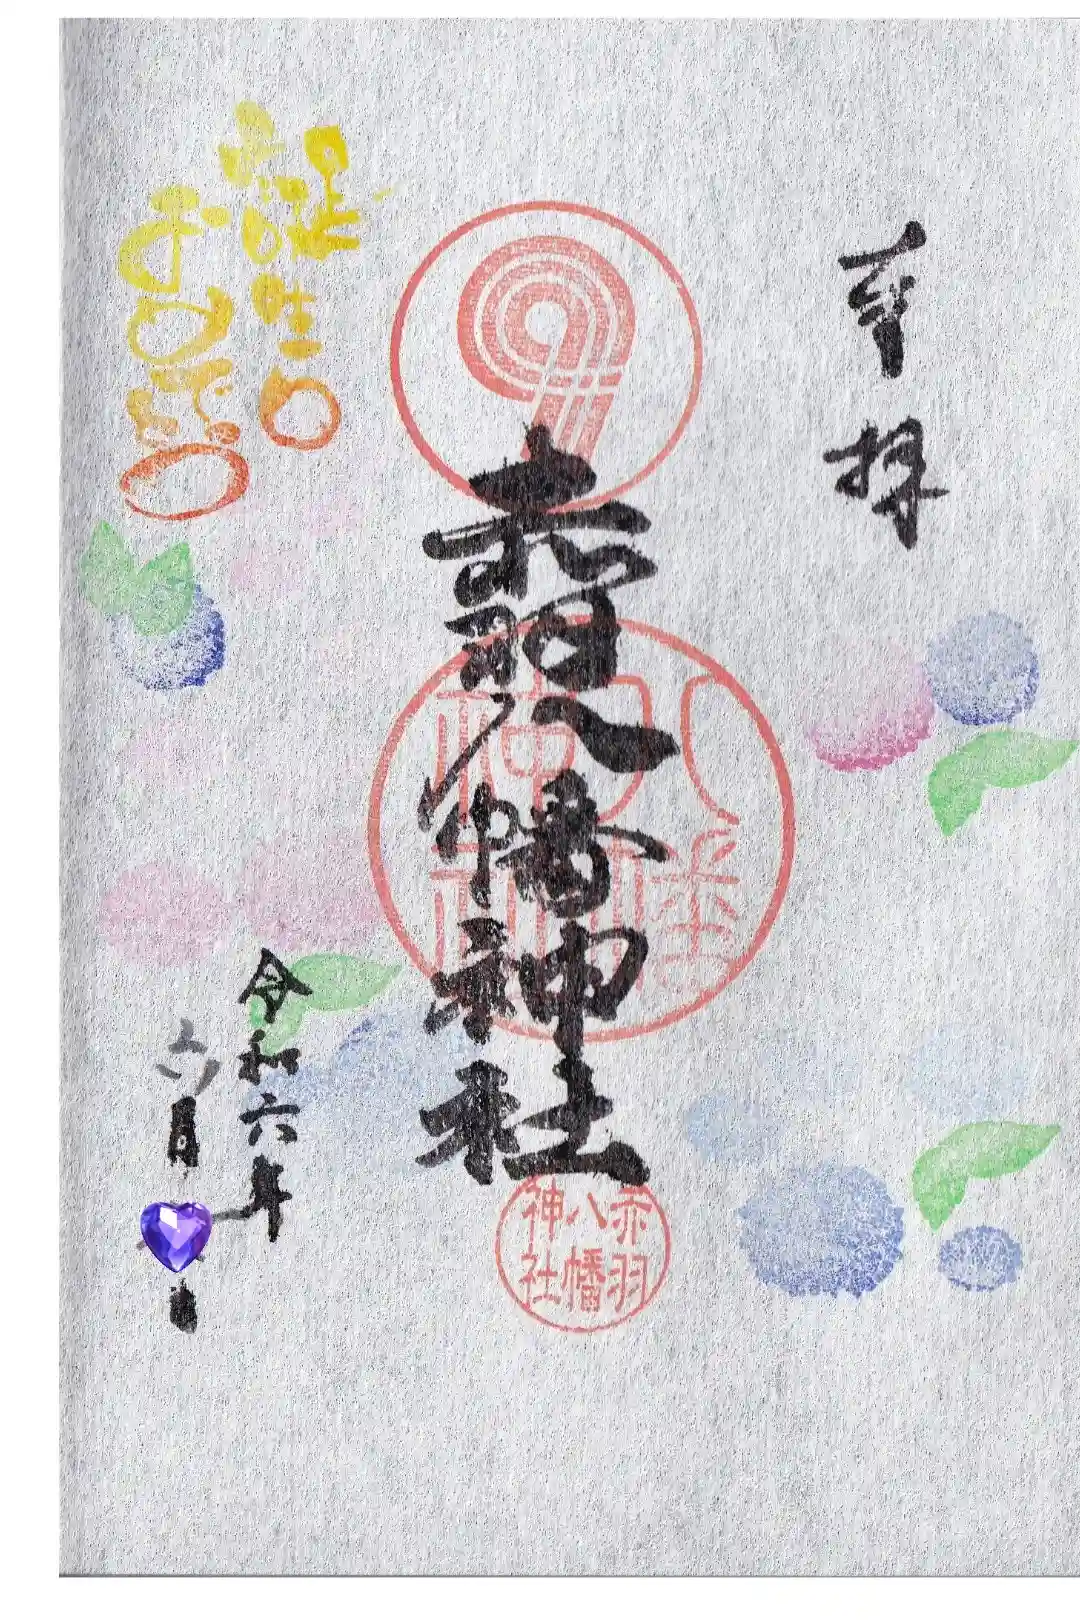 奉拝
赤羽八幡神社
八幡
神社
赤羽
八幡
神社
令和六年
六月
日